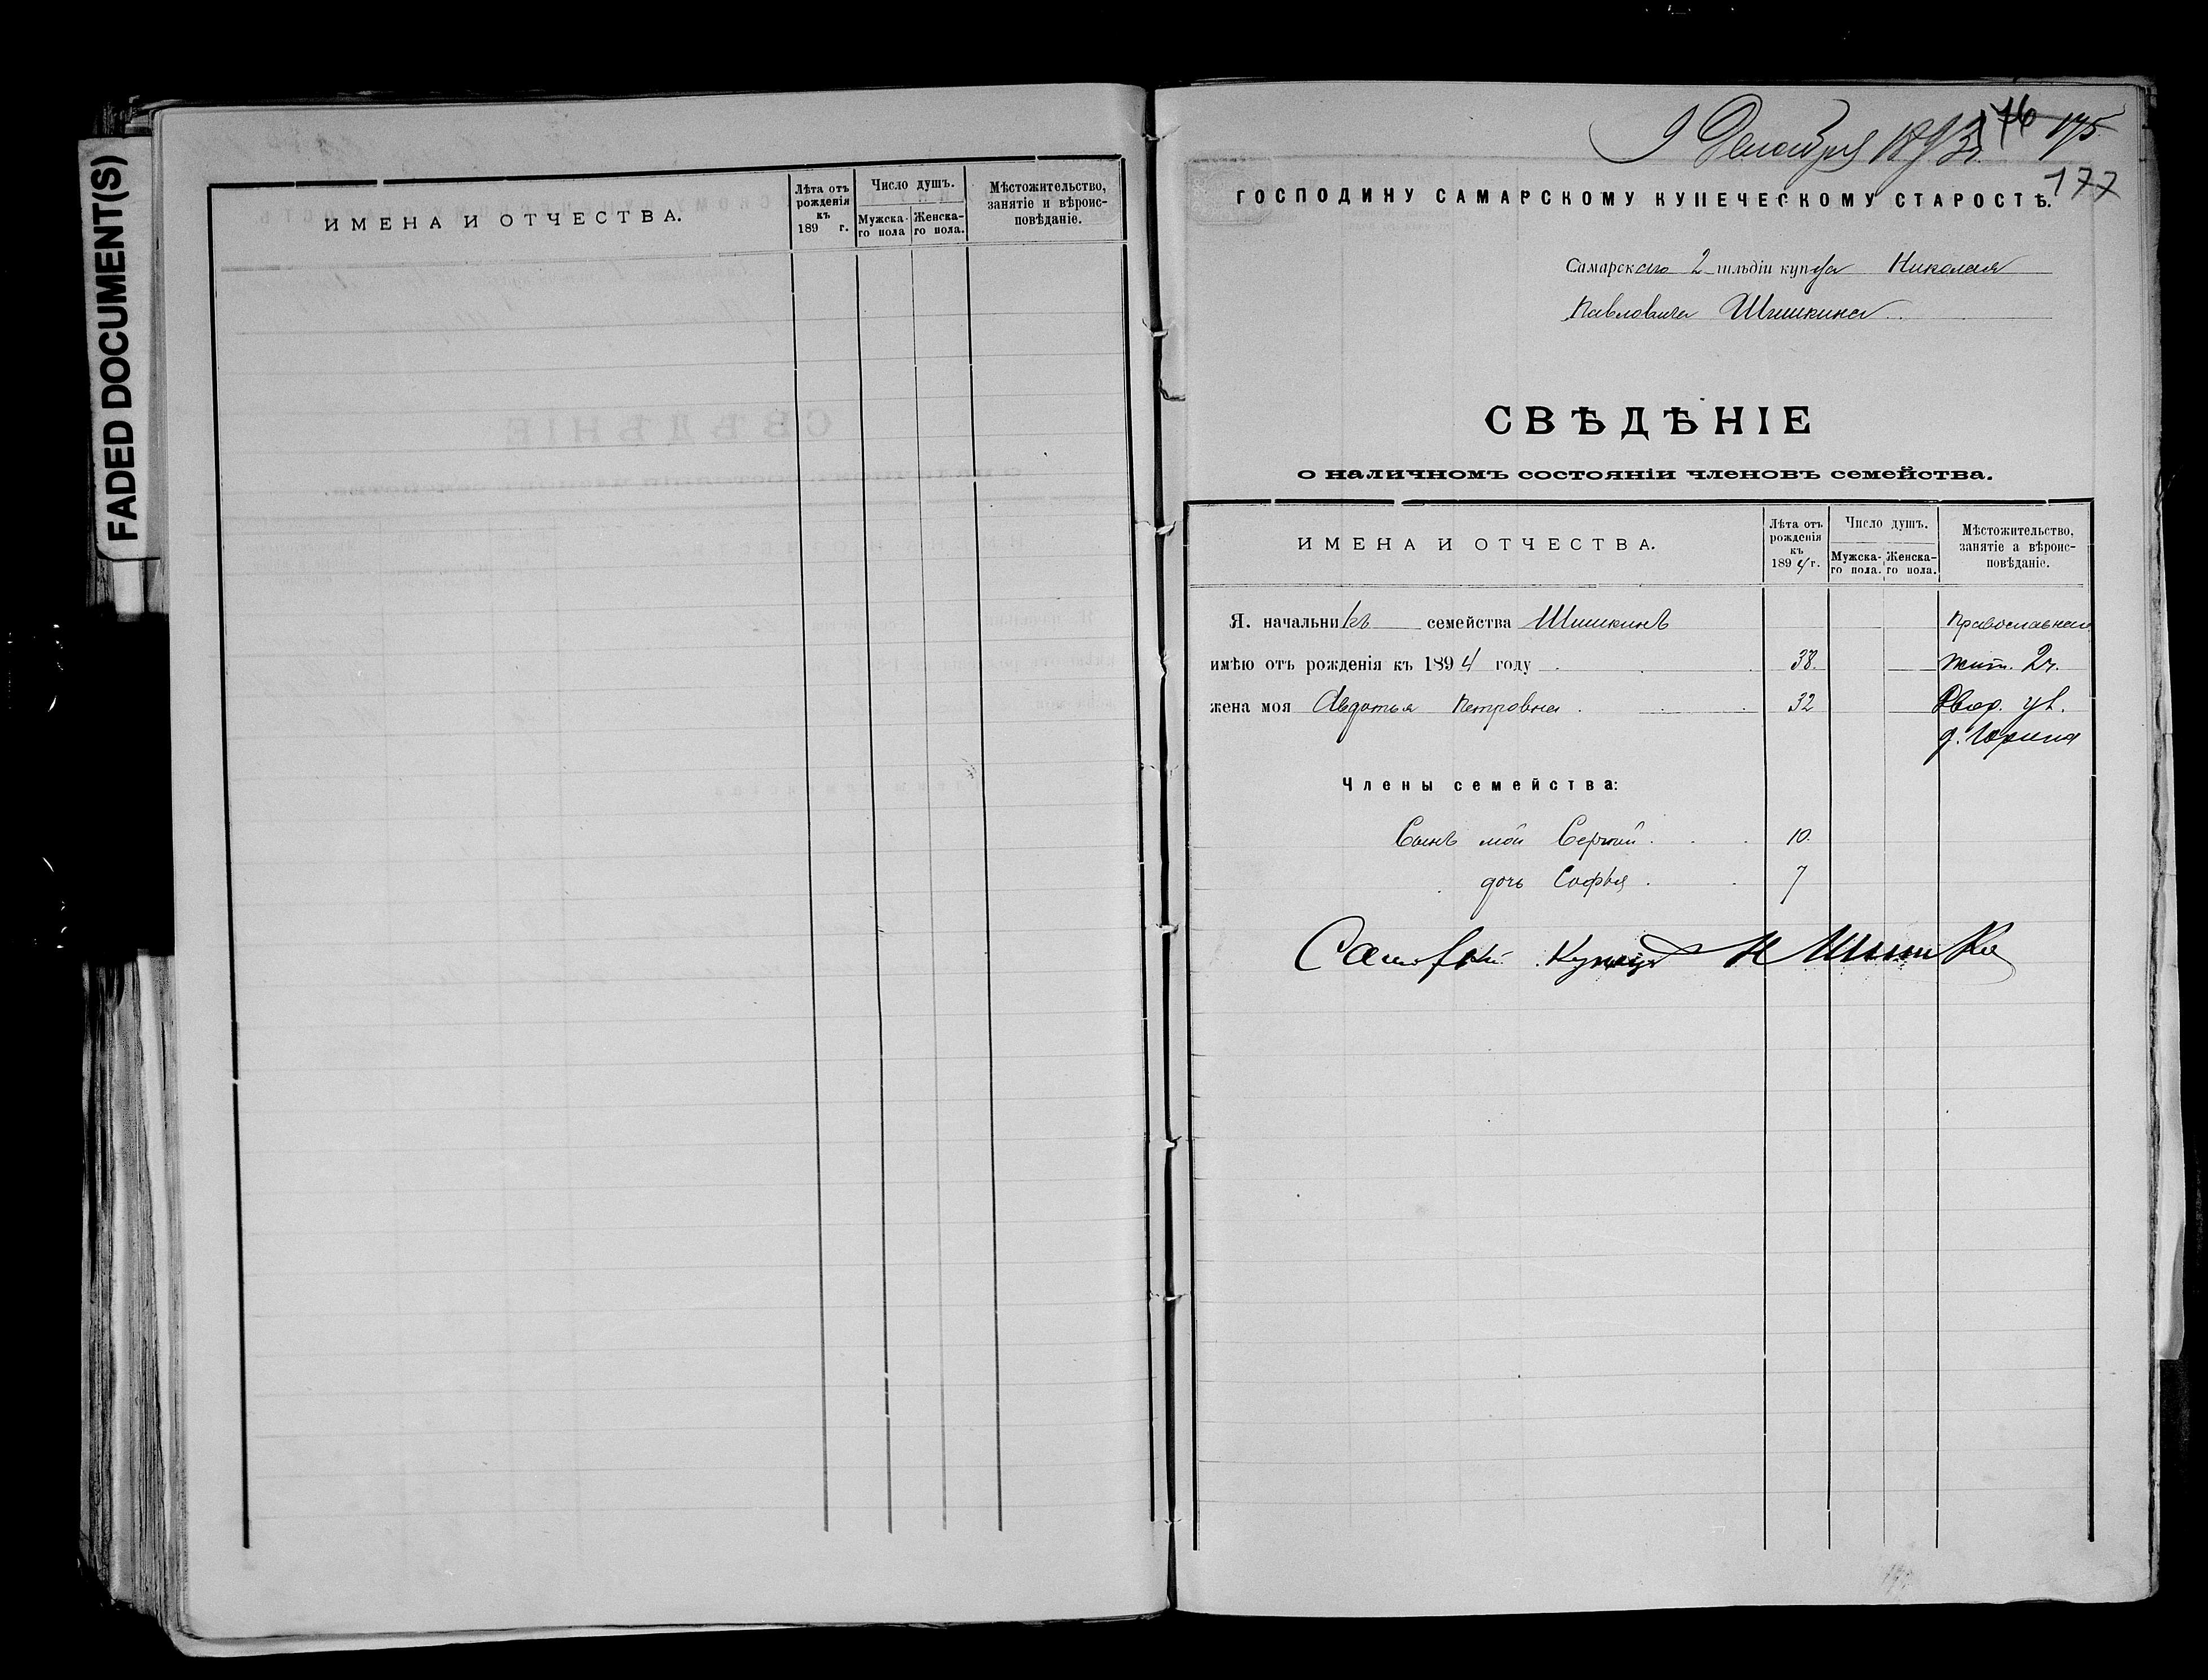 FADED DOCUMENT(S)
ИМЕНА И ОТЧЕСТВА.
Лѣта отъ рожденія къ 189 г.
Число душъ.
Мужска-го пола
Женска-го пола.
Мѣстожительство, занятіе и вѣроис-повѣданіе.
9 Декабря 1893 г.
176 175
177
ГОСПОДИНУ САМАРСКОМУ КУПЕЧЕСКОМУ СТАРОСТѢ.
Самарскаго 2 гильдіи купца Николая
Павловича Шишкина
СВѢДѢНІЕ
о наличномъ состояніи членовъ семейства.
ИМЕНА И ОТЧЕСТВА.
Лѣта отъ рожденія къ 1894 г.
Число душъ.
Мужска-го пола.
Женска-го пола.
Мѣстожительство, занятіе а вѣроис-повѣданіе.
Я. начальникъ семейства Шишкинъ Православнаго
имѣю отъ рожденія къ 1894 году 38. жит. 2 ч.
жена моя Авдотья Петровна 32 Двор. ул.
д. Юрина
Члены семейства:
Сынъ мой Сергѣй 10.
дочь Софья 7
Самарскій Купецъ Н Шишки